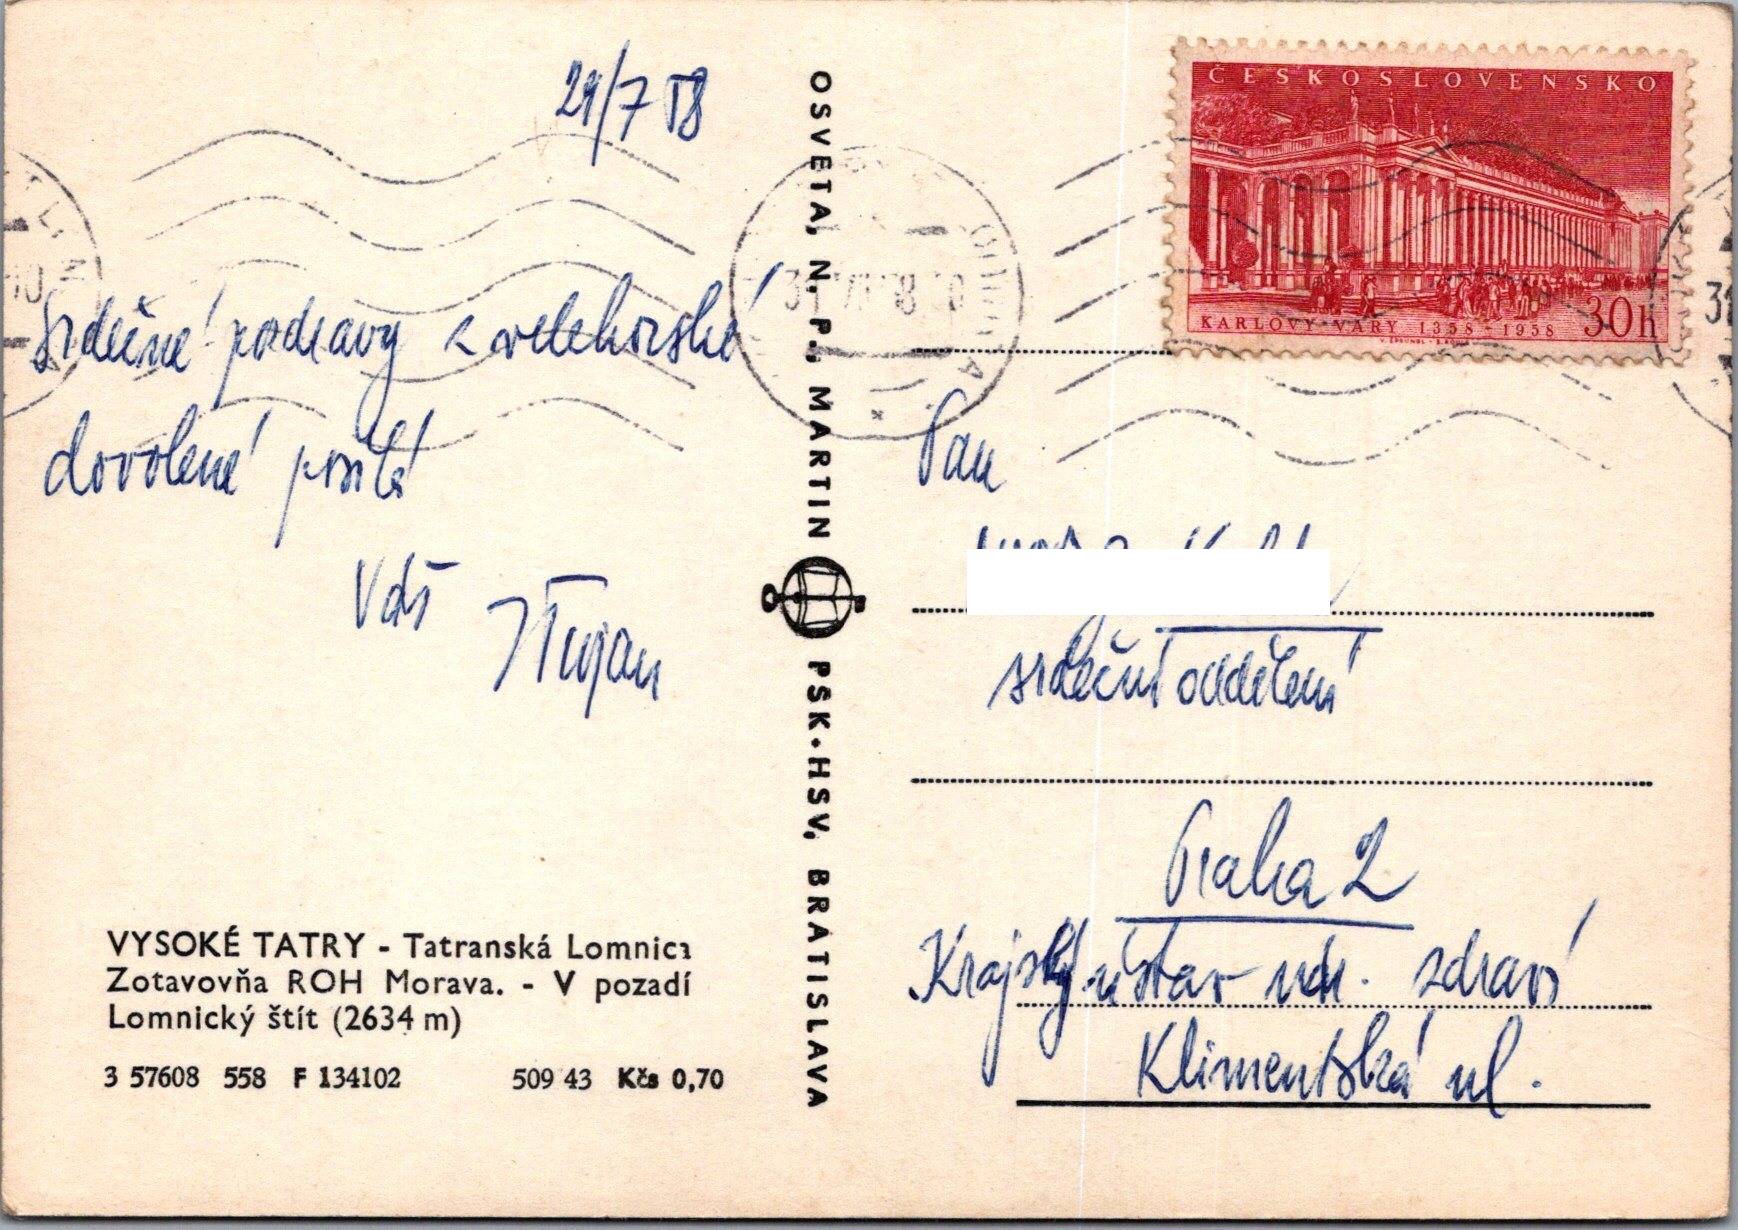 29/7 58
Srdečné pozdravy z velehorské
dovolené posílá
Váš
OSVETA, N. P., MARTIN
PSK-HSV, BRATISLAVA
VYSOKÉ TATRY - Tatranská Lomnica
Zotavovňa ROH Morava. - V pozadí
Lomnický štít (2634 m)
3 57608 558 F 134102 509 43 Kčs 0,70
ČESKOSLOVENSKO
KARLOVY VARY 1358-1958 30h
Pan
srdeční oddělení
Praha 2
Krajský ústav nár. zdraví
Klimentská ul.